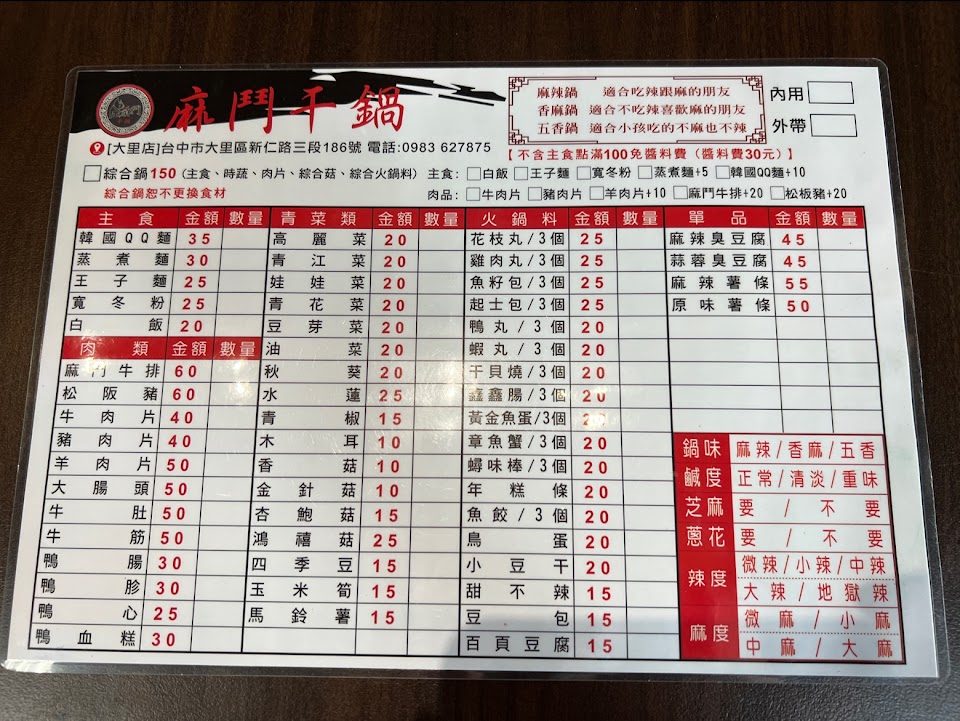 麻鬥干鍋
[大里店]台中市大里區新仁路三段186號 電話:0983 627875
麻辣鍋 適合吃辣跟麻的朋友
香麻鍋 適合不吃辣喜歡麻的朋友
五香鍋 適合小孩吃的不麻也不辣
【不含主食點滿100免醬料費(醬料費30元)】
內用
外帶
綜合鍋150(主食、時蔬、肉片、綜合菇、綜合火鍋料) 主食:白飯 王子麵 寬冬粉 蒸煮麵+5 韓國QQ麵+10
綜合鍋恕不更換食材 肉品:牛肉片 豬肉片 羊肉片+10 麻鬥牛排+20 松板豬+20
主食 金額 數量
韓國QQ麵 35
蒸煮麵 30
王子麵 25
寬冬粉 25
白飯 20
肉類 金額 數量
麻鬥牛排 60
松阪豬 60
牛肉片 40
豬肉片 40
羊肉片 50
大腸頭 50
牛肚 50
牛筋 50
鴨腸 30
鴨胗 30
鴨心 25
鴨血糕 30
青菜類 金額 數量
高麗菜 20
青江菜 20
娃娃菜 20
青花菜 20
豆芽菜 20
油菜 20
秋葵 20
水蓮 25
青椒 15
木耳 10
香菇 10
金針菇 10
杏鮑菇 15
鴻禧菇 25
四季豆 15
玉米筍 15
馬鈴薯 15
火鍋料 金額 數量
花枝丸/3個 25
雞肉丸/3個 25
魚籽包/3個 25
起士包/3個 25
鴨丸/3個 20
蝦丸/3個 20
干貝燒/3個 20
鑫鑫腸/3個 20
黃金魚蛋/3個 20
章魚蟹/3個 20
蟳味棒/3個 20
年糕條 20
魚餃/3個 20
鳥蛋 20
小豆干 20
甜不辣 15
豆包 15
百頁豆腐 15
單品 金額 數量
麻辣臭豆腐 45
蒜蓉臭豆腐 45
麻辣薯條 55
原味薯條 50
鍋味 麻辣/香麻/五香
鹹度 正常/清淡/重味
芝麻 要/不要
蔥花 要/不要
辣度 微辣/小辣/中辣
大辣/地獄辣
麻度 微麻/小麻
中麻/大麻